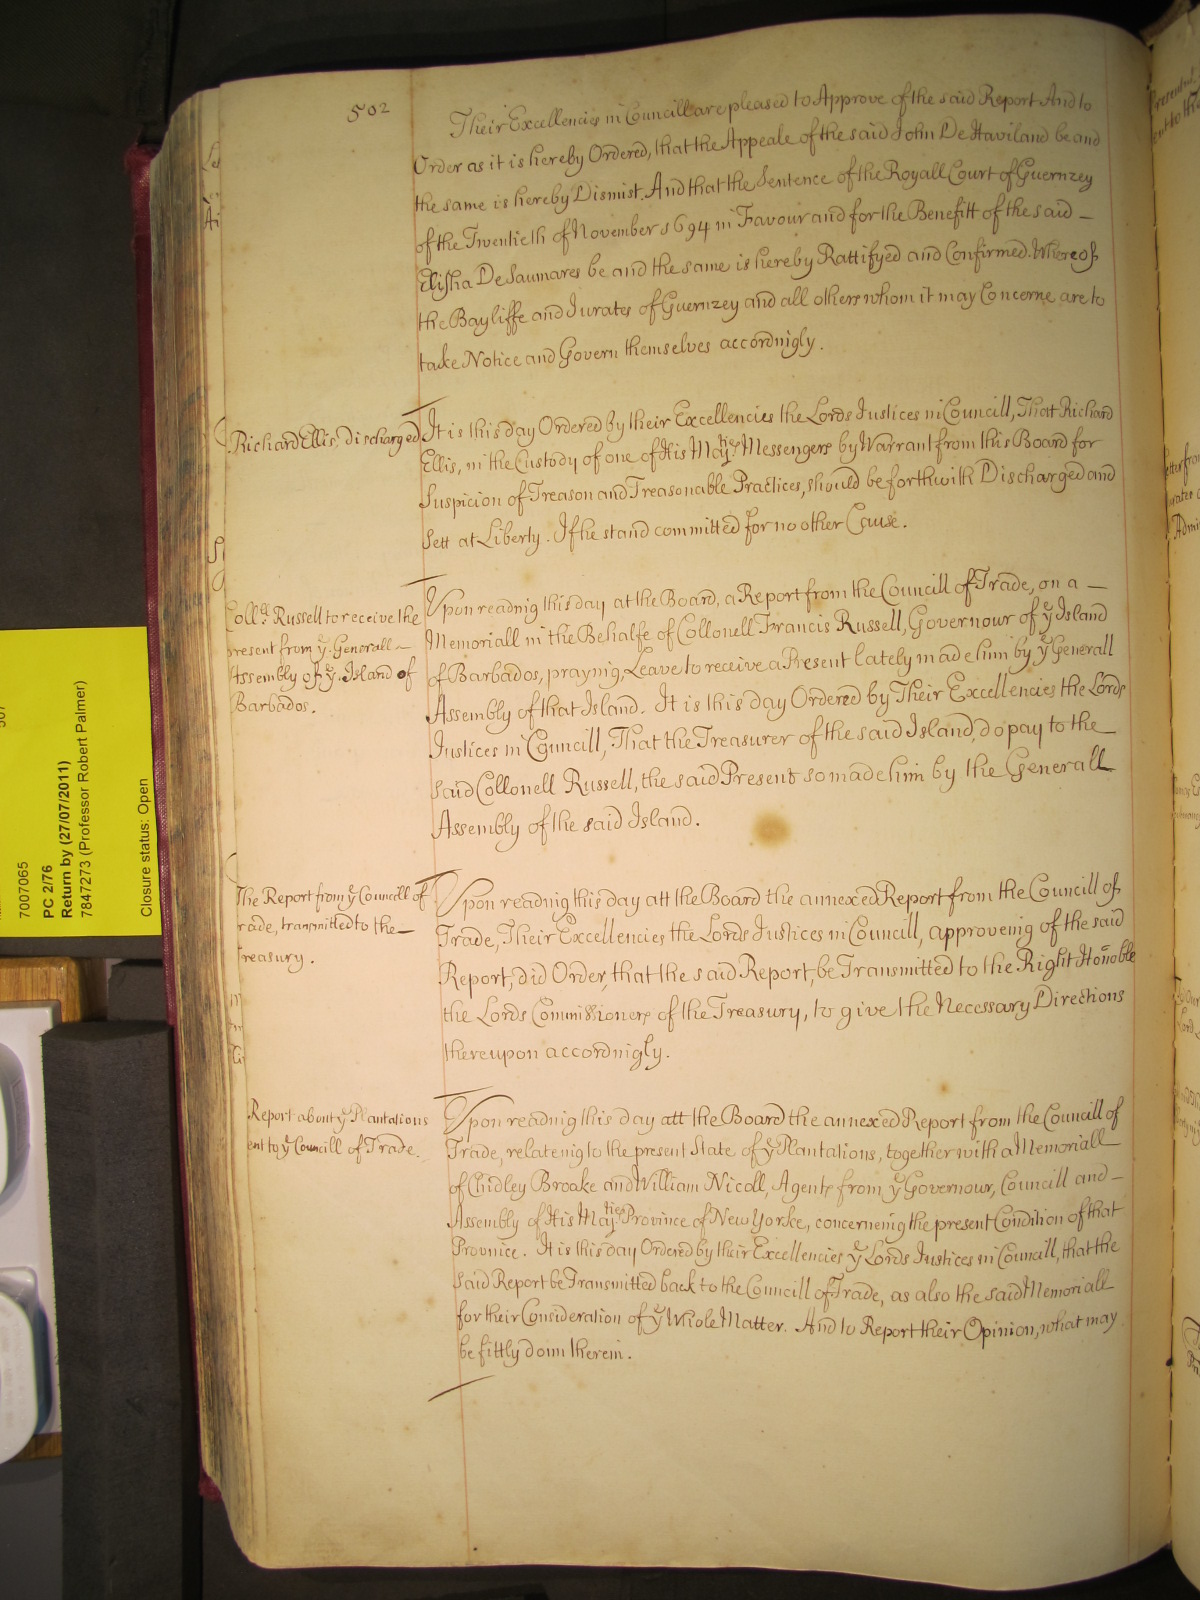 502
Their Excellencies in Councill are pleased to Approve of the said Report And to
Order as it is hereby Ordered, that the Appeale of the said John De Haviland be and
the same is hereby Dismist. And that the Sentence of the Royall Court of Guernzey
of the Twentieth of November 1694 in Favour and for the Benefitt of the said –
Elisha De Saumares be and the same is hereby Rattifyed and Confirmed. Whereof
the Bayliffe and Jurates of Guernzey and all others whom it may Concerne are to
take Notice and Govern themselves accordingly.
Richard Ellis, discharged
It is this day Ordered by their Excellencies the Lords Justices in Councill, That Richard
Ellis, in the Custody of one of His Maj.ties Messengers by Warrant from this Board for
Suspicion of Treason and Treasonable Practices, should be forthwith Discharged and
Sett at Liberty. If he stand committed for no other Cause.
Coll.ll Russell to receive the
present from ye. Generall ~
Assembly of ye. Island of
Barbados.
Upon reading this day at the Board, a Report from the Councill of Trade, on a —
Memoriall in the Behalfe of Collonell Francis Russell, Governour of ye Island
of Barbados, praying, Leave to receive a Present lately made him by ye Generall
Assembly of that Island. It is this day Ordered by Their Excellencies the Lords
Justices in Councill, That the Treasurer of the said Island, do pay to the
said Collonell Russell, the said Present so made him by the Generall
Assembly of the said Island.
The Report from ye Councill of
rade, transmitted to the —
Treasury.
Upon reading this day att the Board the annexed Report from the Councill of
Trade, Their Excellencies the Lords Justices in Councill, approveing of the said
Report, did Order, that the said Report, be Transmitted to the Right Honoble
the Lords Commissioners of the Treasury, to give the Necessary Directions
thereupon accordingly.
Report about ye Plantations
ent to ye Councill of Trade.
Upon reading this day att the Board the annexed Report from the Councill of
Trade, relateing to the present State of ye Plantations, together with a Memoriall
of Chidley Brooke and William Nicoll, Agents from ye Governour, Councill and –
Assembly of His Maj.ties Province of New Yorke, concerneing the present Condition of that
Province. It is this day Ordered by their Excellencies ye Lords Justices in Councill, that the
said Report be Transmitted back to the Councill of Trade, as also the said Memoriall
for their Consideration of ye Whole Matter. And to Report their Opinion, what may
be fittly don therein.
7007065
PC 2/76
Return by (27/07/2011)
7847273 (Professor Robert Palmer)
Closure status: Open